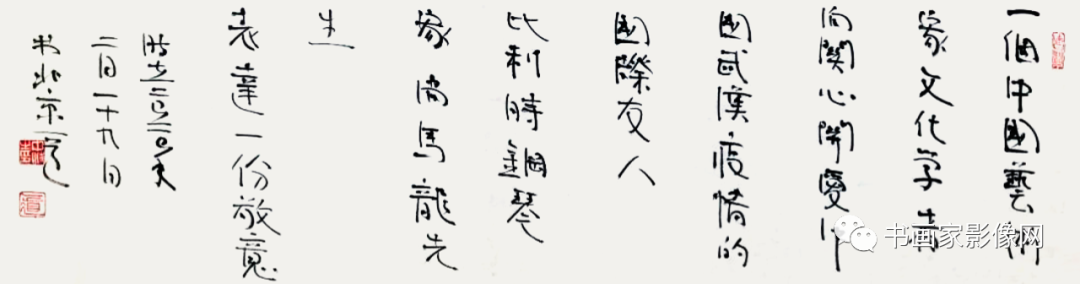 一個中國藝術
家文化學者
向關心關愛中
國武漢疫情的
國際友人
比利時鋼琴
家尚馬龍先
生
表達一份敬意
時在二〇二〇年
二月一十九日
北京
书画家影像网